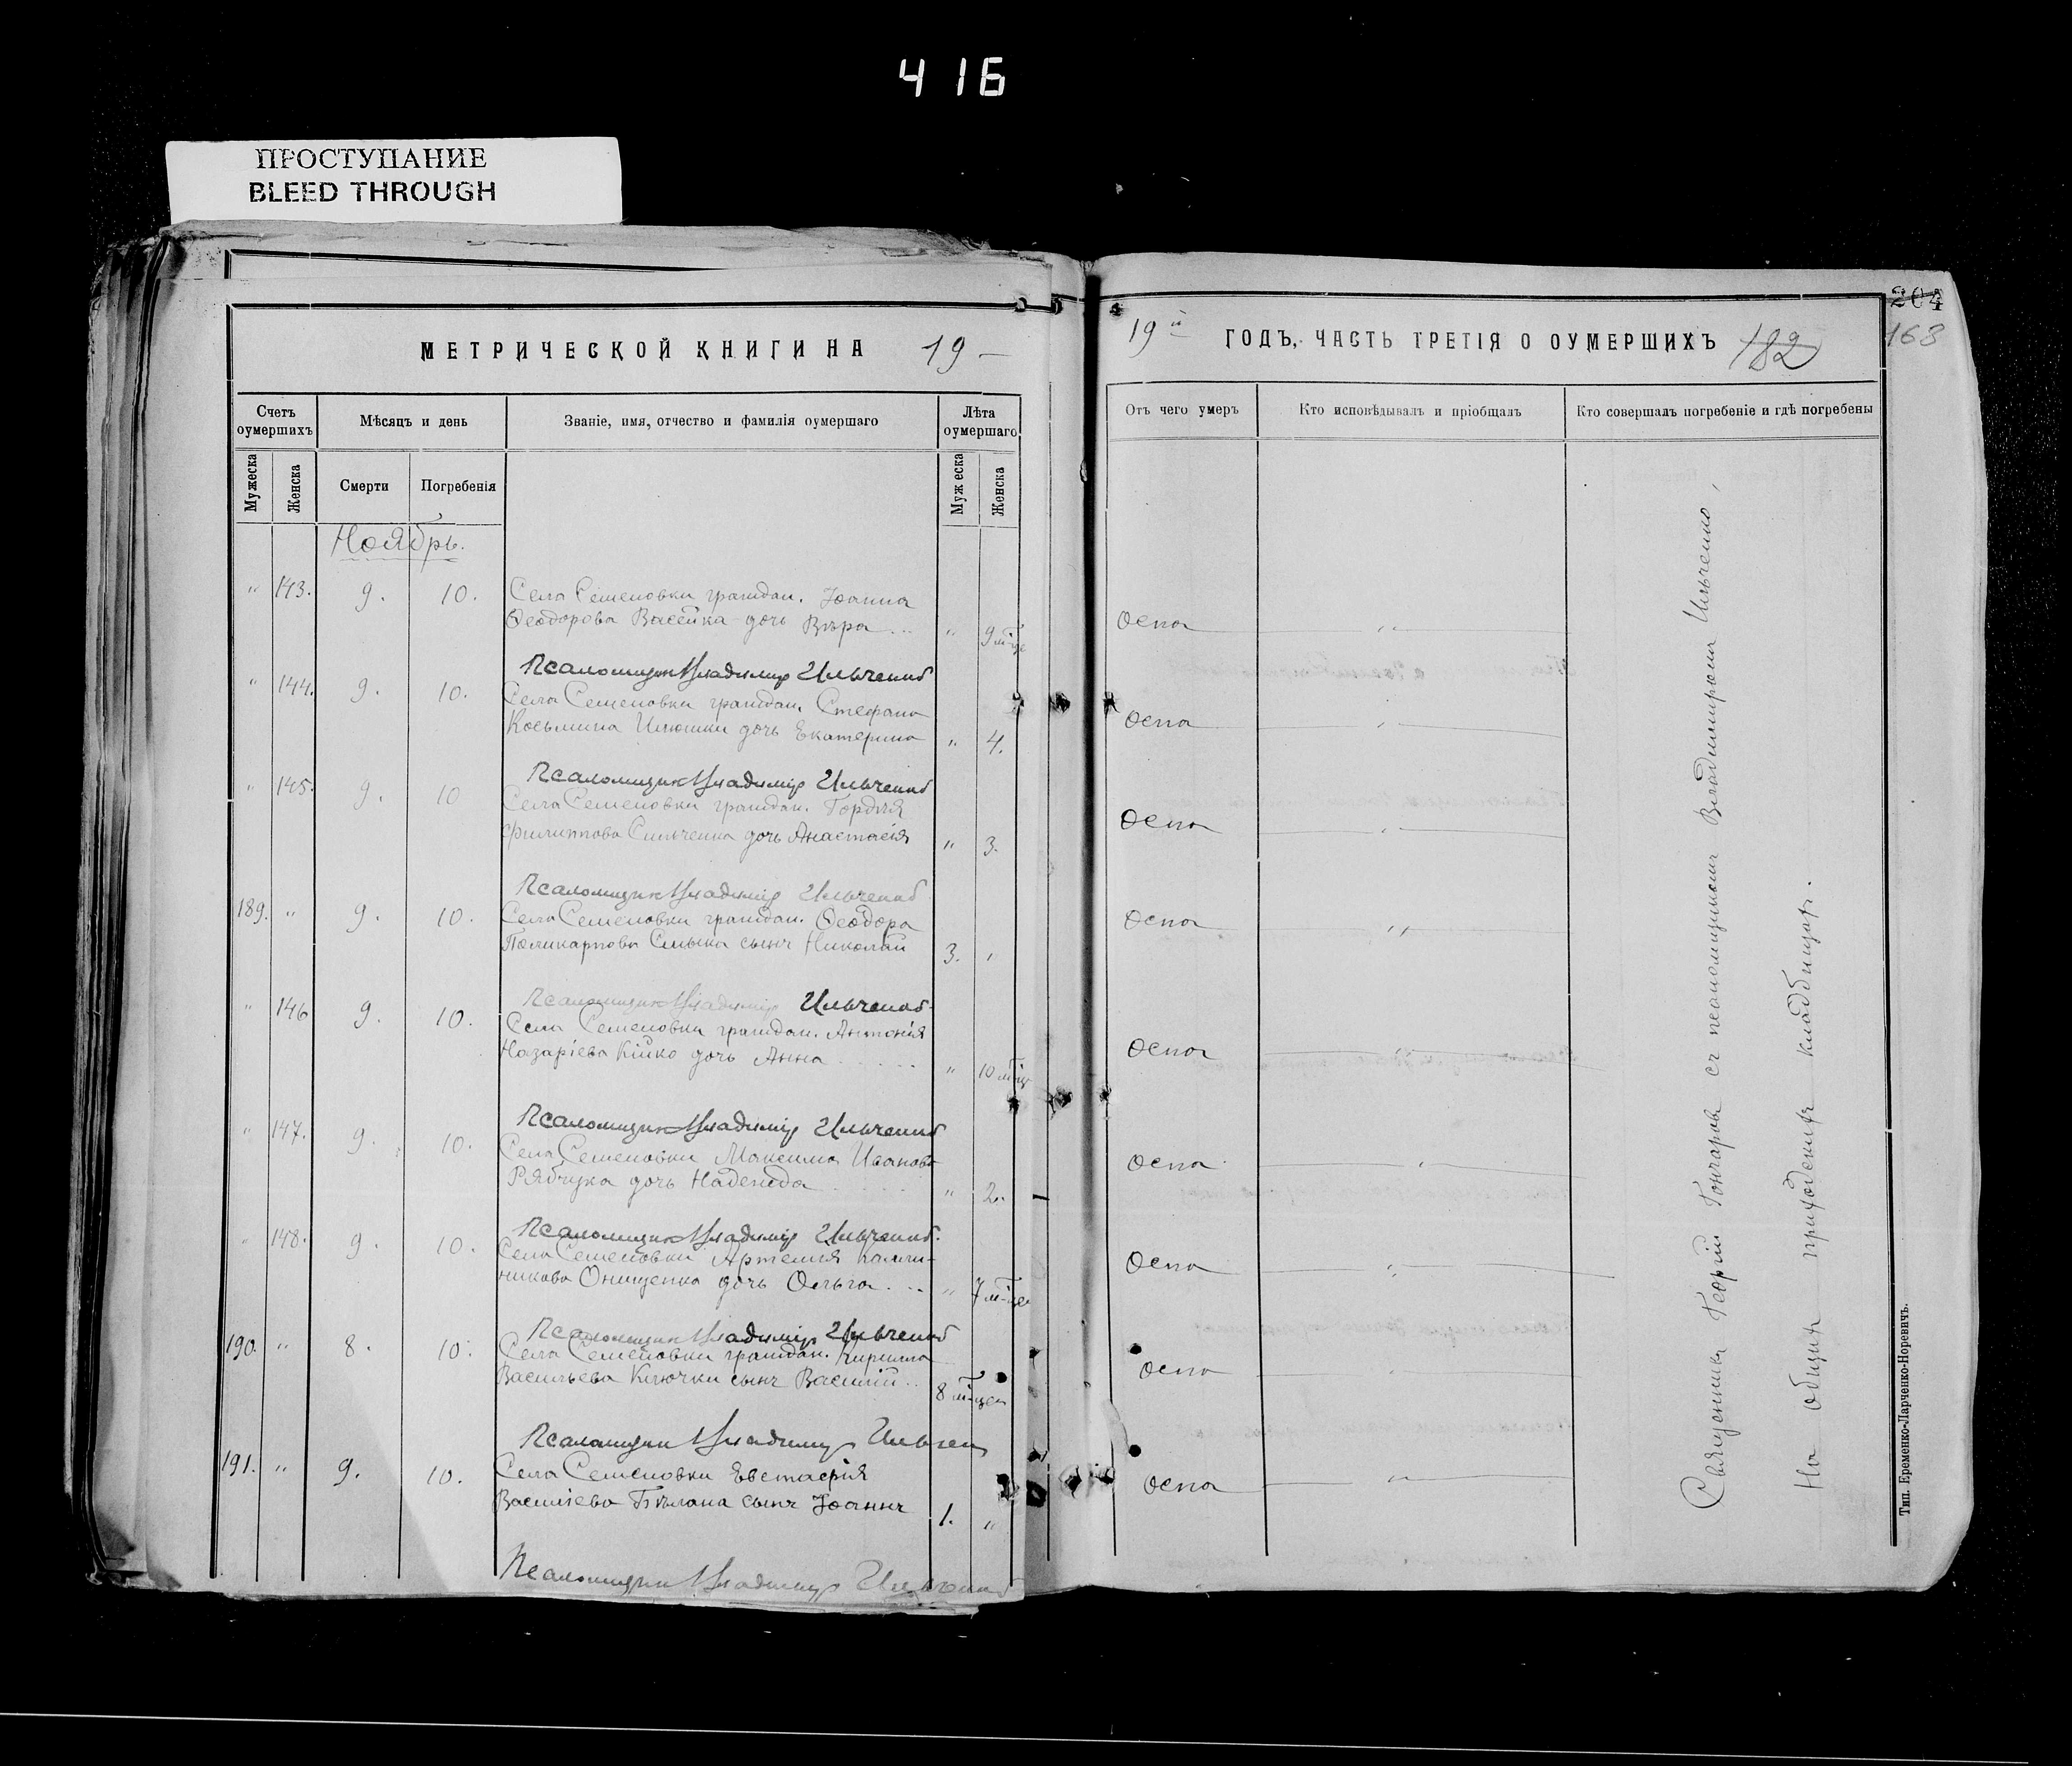 416
ПРОСТУПАНИЕ
BLEED THROUGH
МЕТРИЧЕСКОЙ КНИГИ НА 19 —
Счетъ оумершихъ
Мѣсяцъ и день
Званіе, имя, отчество и фамилія оумершаго
Лѣта оумершаго
Мужеска
Женска
Смерти
Погребенія
Мужеска
Женска
Ноябрь.
" 143. 9. 10. Села Семеновки граждан. Іоанна
Ѳеодорова Васейка дочь Вѣра ... " 9 м-це
Псаломщик Владимир Ильченко
" 144. 9. 10. Села Семеновки граждан. Стефана
Косьмина Илюшки дочь Екатерина " 4.
Псаломщик Владимір Ильченко
" 145. 9. 10 Села Семеновки граждан. Гордѣя
Филиппова Сильченка дочь Анастасія " 3.
Псаломщик Владимір Ильченко
189. " 9. 10. Села Семеновки граждан. Ѳеодора
Поликарпова Смыка сынъ Николай 3. "
Псаломщик Владимір Ильченко
" 146 9. 10. Села Семеновки граждан. Антонія
Назаріева Кійко дочь Анна " 10 м-це
Псаломщик Владимір Ильченко
" 147. 9. 10. Села Семеновки Максима Иванова
Рябчука дочь Надежда " 2.
Псаломщик Владимір Ильченко.
" 148. 9. 10. Села Семеновки Артемія
Онищенка дочь Ольга ... " 7 м-цев
Псаломщик Владимір Ильченко
190. " 8. 10. Села Семеновки граждан. Кирилла
Васильева Ключки сынъ Василій .. 8 м-цев
Псаломщик Владимир Ильчен
191. " 9. 10. Села Семеновки Евстафія
Василіева Бѣлана сынъ Іоаннъ 1. "
Псаломщик Владимир Ильченко
204
163
19 й ГОДЪ, ЧАСТЬ ТРЕТІЯ О ОУМЕРШИХЪ 182
Отъ чего умеръ
Кто исповѣдывалъ и пріобщалъ
Кто совершалъ погребеніе и гдѣ погребены
Оспа "
Оспа "
Оспа "
Оспа "
Оспа "
Оспа "
Оспа "
Оспа "
Оспа "
Священникъ Георгій Гончаровъ съ псаломщикомъ Владимиромъ Ильченко,
На общемъ приходскомъ кладбищѣ.
Тип. Еременко-Ларченко-Норевичъ.